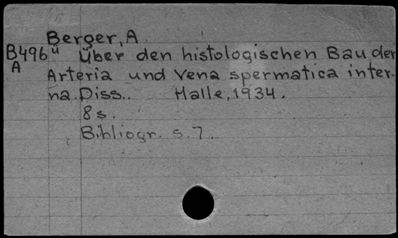 Berger, A
B496ü Über den histologischen Bau der
A Arteria und Vena spermatica inter-
na Diss.. Halle, 1934.
8 s.
Bibliogr. s. 7.